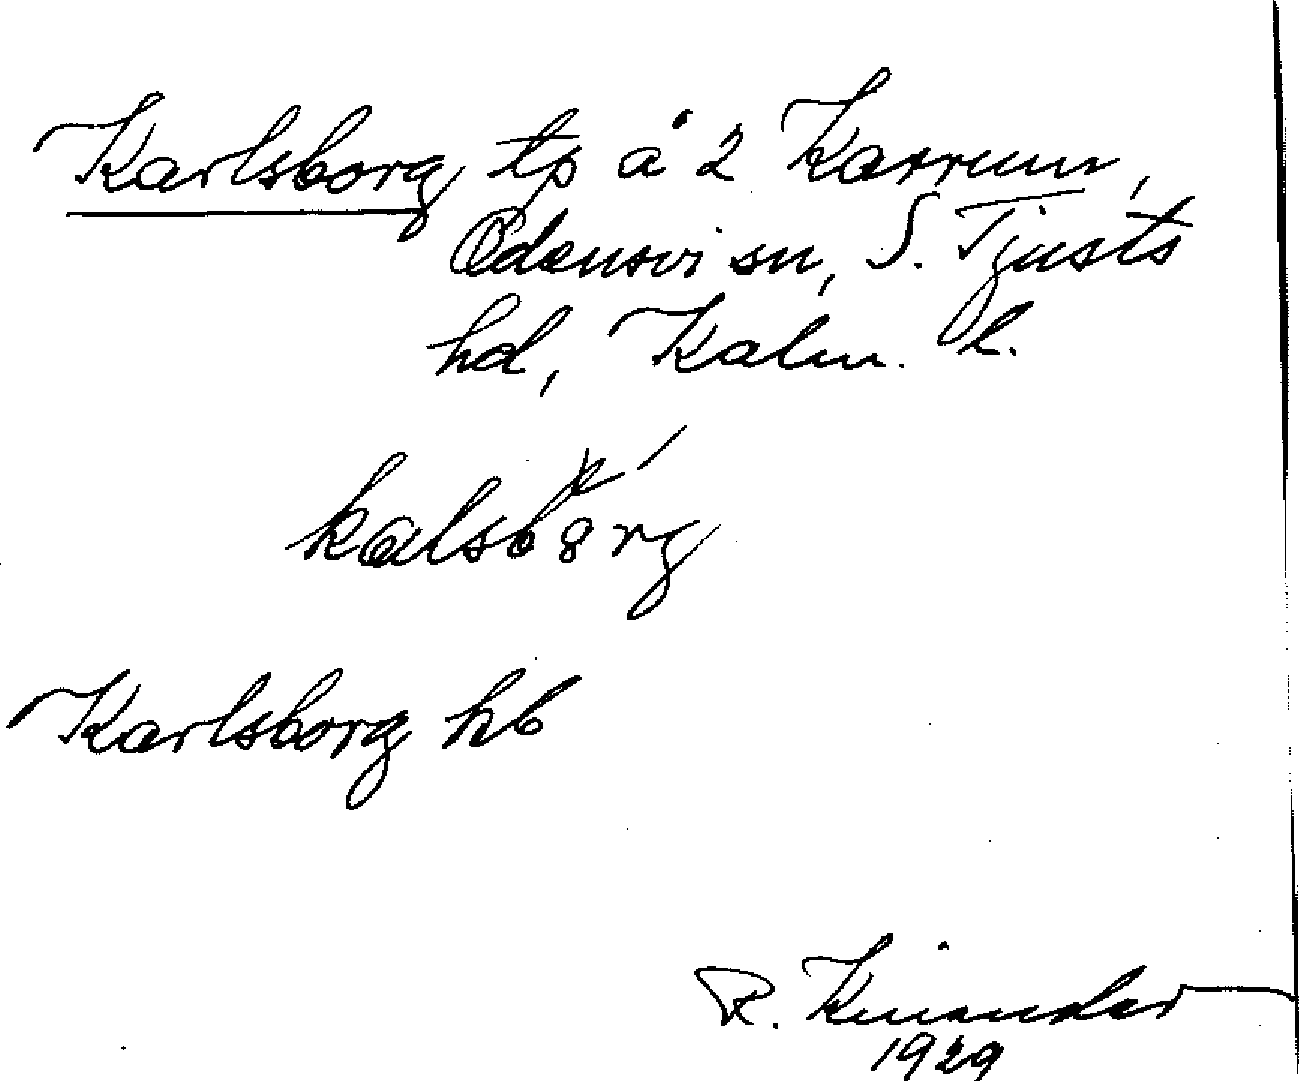 Karlsborg tp å 2 Karrum,
Odensvi sn, S. Tjusts
hd, Kalm. l.
kalsbɷrg
Karlsborg hb
R. Kinander
1929